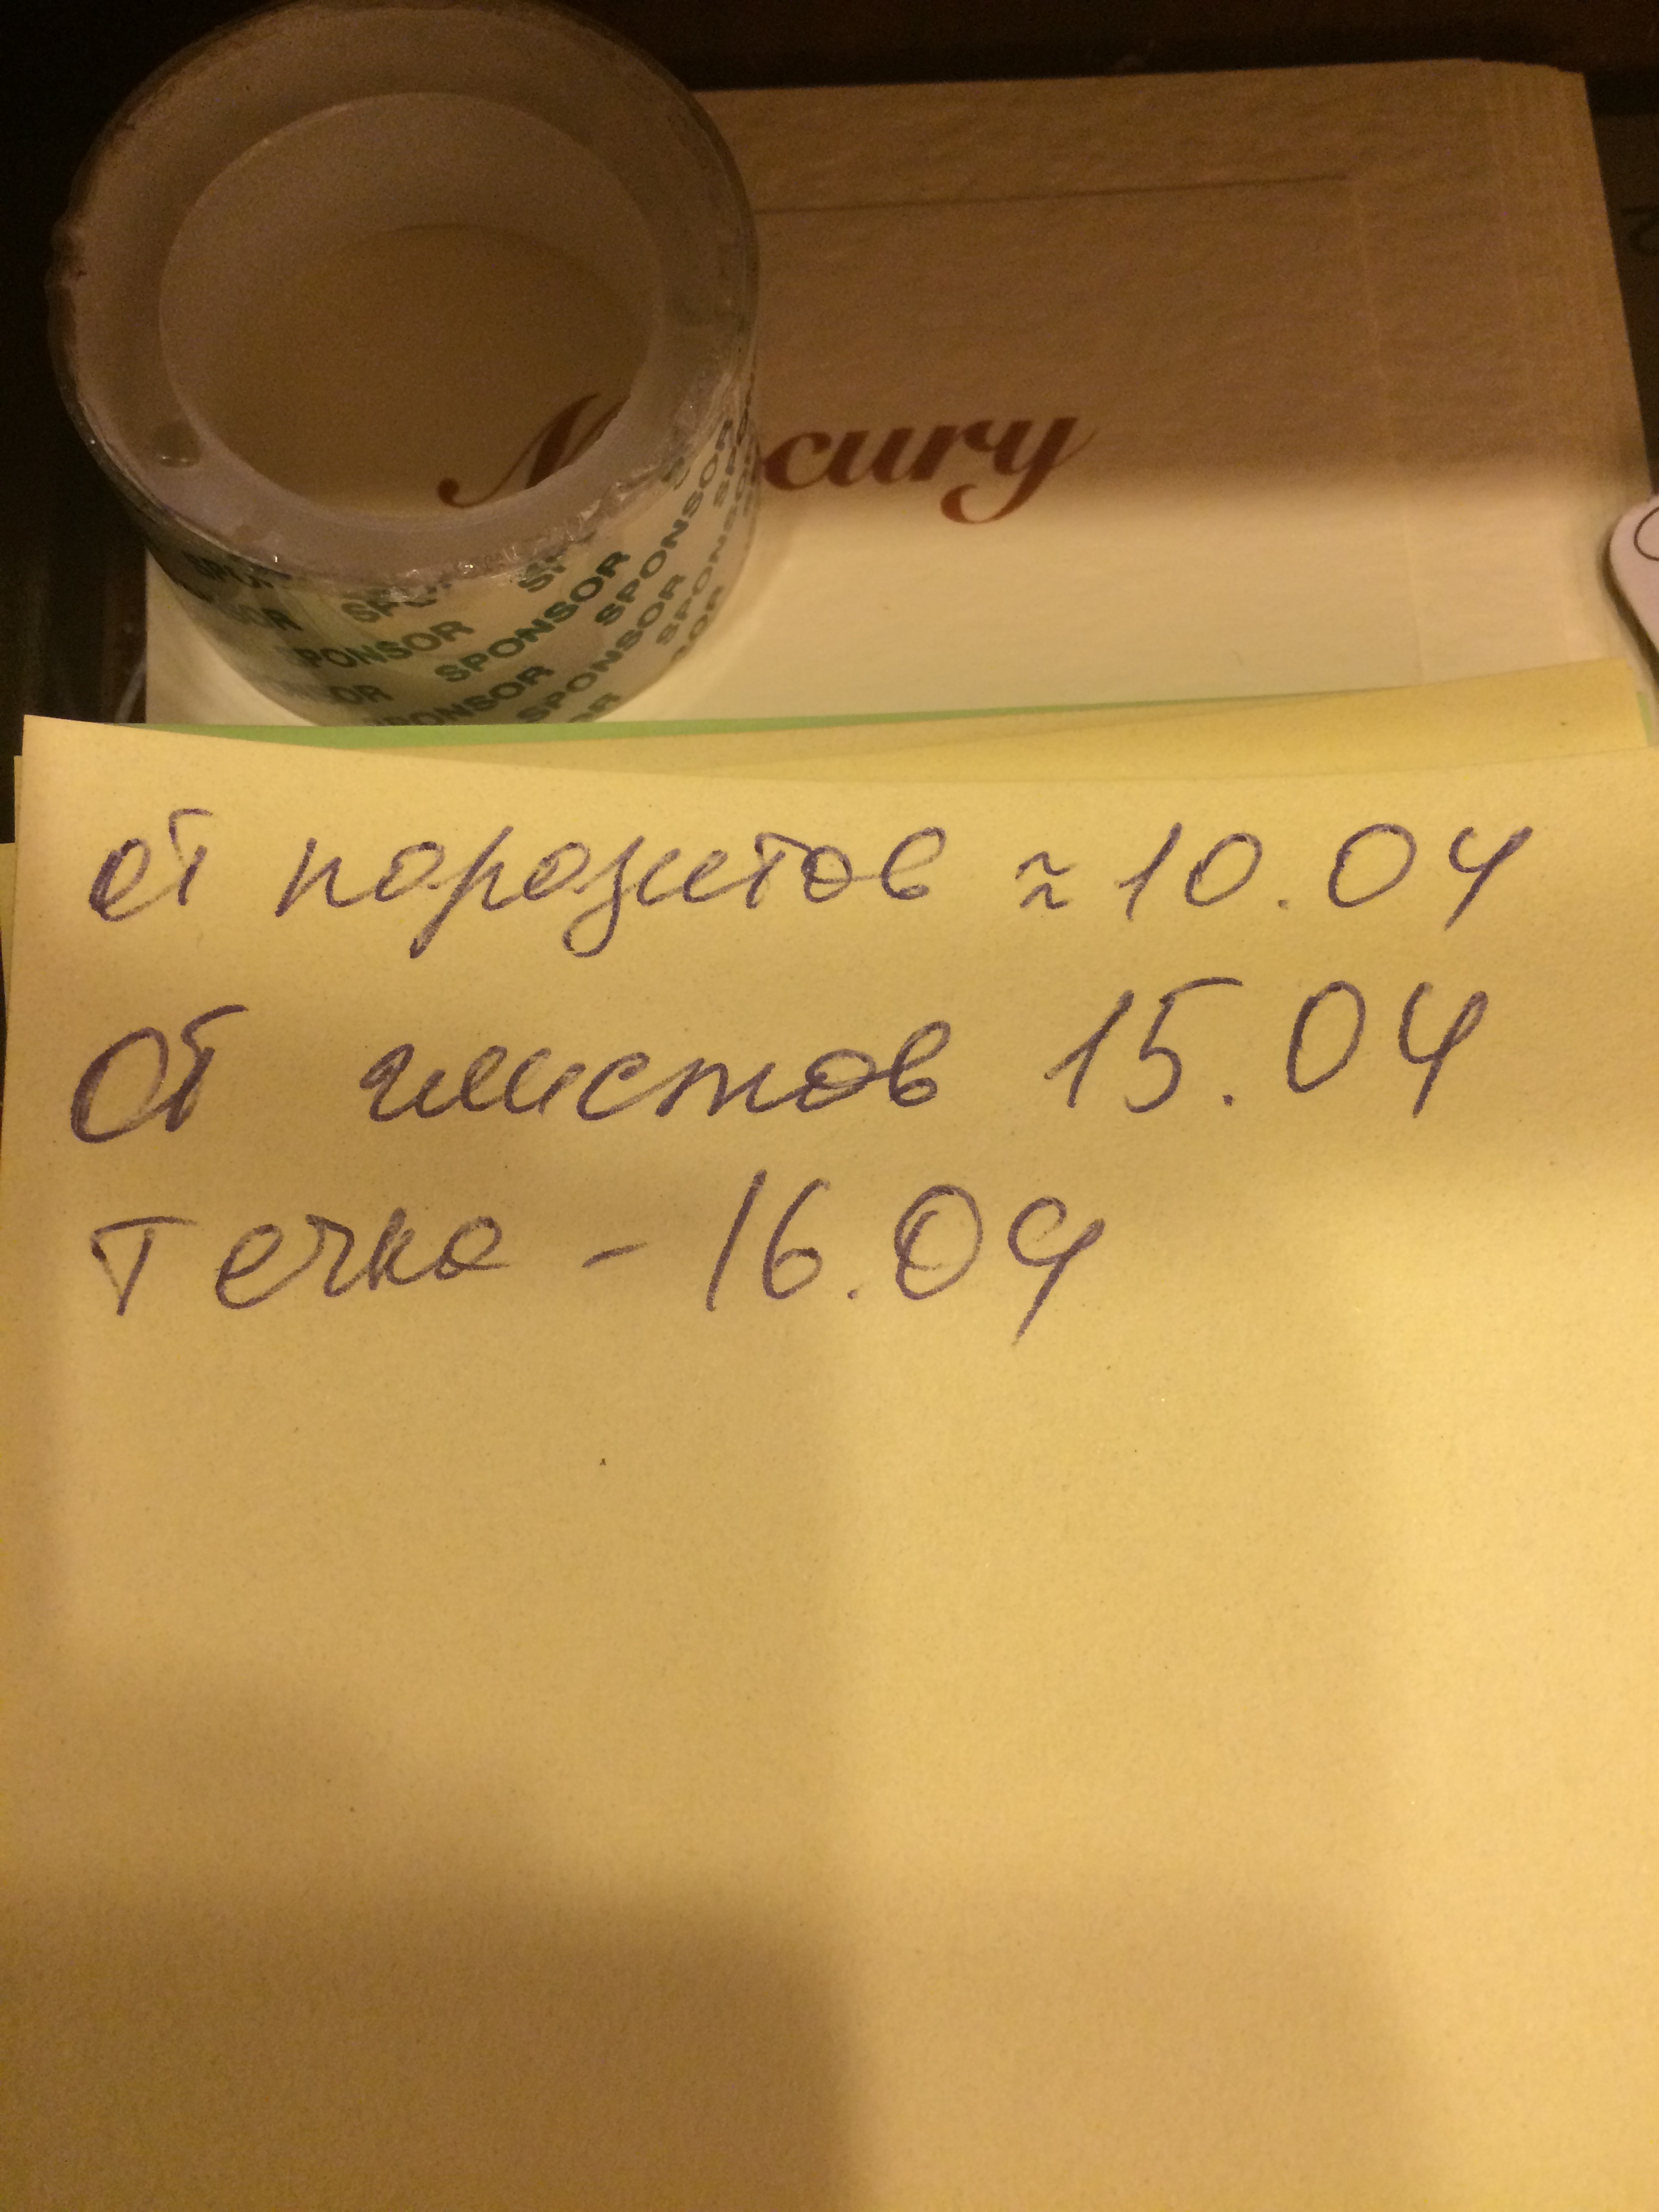 Mercury
SPONSOR SPONSOR
SPONSOR SPONSOR
SPONSOR SPONSOR
от поразитов ≈ 10.04
От глистов 15.04
Течка - 16.04